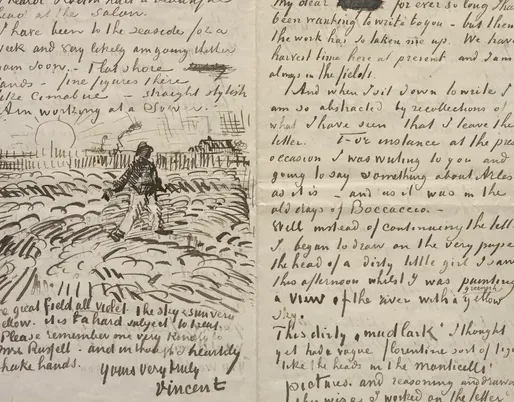 head at the Salon.
I have been to the seaside for a
week and very likely am going thither
again soon. - Flat shore
sands - fine figures there
like Cimabue - straight stylish
Am working at a Sower. -
great field all violet the sky & sun very
yellow. it is a hard subject to treat.
Please remember me very kindly to
Mrs Russell - and in thought I heartily
shake hands.
Yours very truly
Vincent
My dear for ever so long I ha
been wanting to write to you - but then
the work has so taken me up. We have
harvest time here at present and I am
always in the fields.
And when I sit down to write I
am so abstracted by recollections of
what I have seen that I leave the
letter. For instance at the present
occasion I was writing to you and
going to say something about Arles
as it is - and as it was in the
old days of Boccaccio. -
Well instead of continuing the letter
I began to draw on the very paper
the head of a dirty little girl I saw
this afternoon whilst I was painting
a view of the river with a greenish yellow
sky.
This dirty "mudlark" I thought
yet had a vague florentine sort of figure
like the heads in the monticelli
pictures. and reasoning and drawing
this wise I worked on the letter